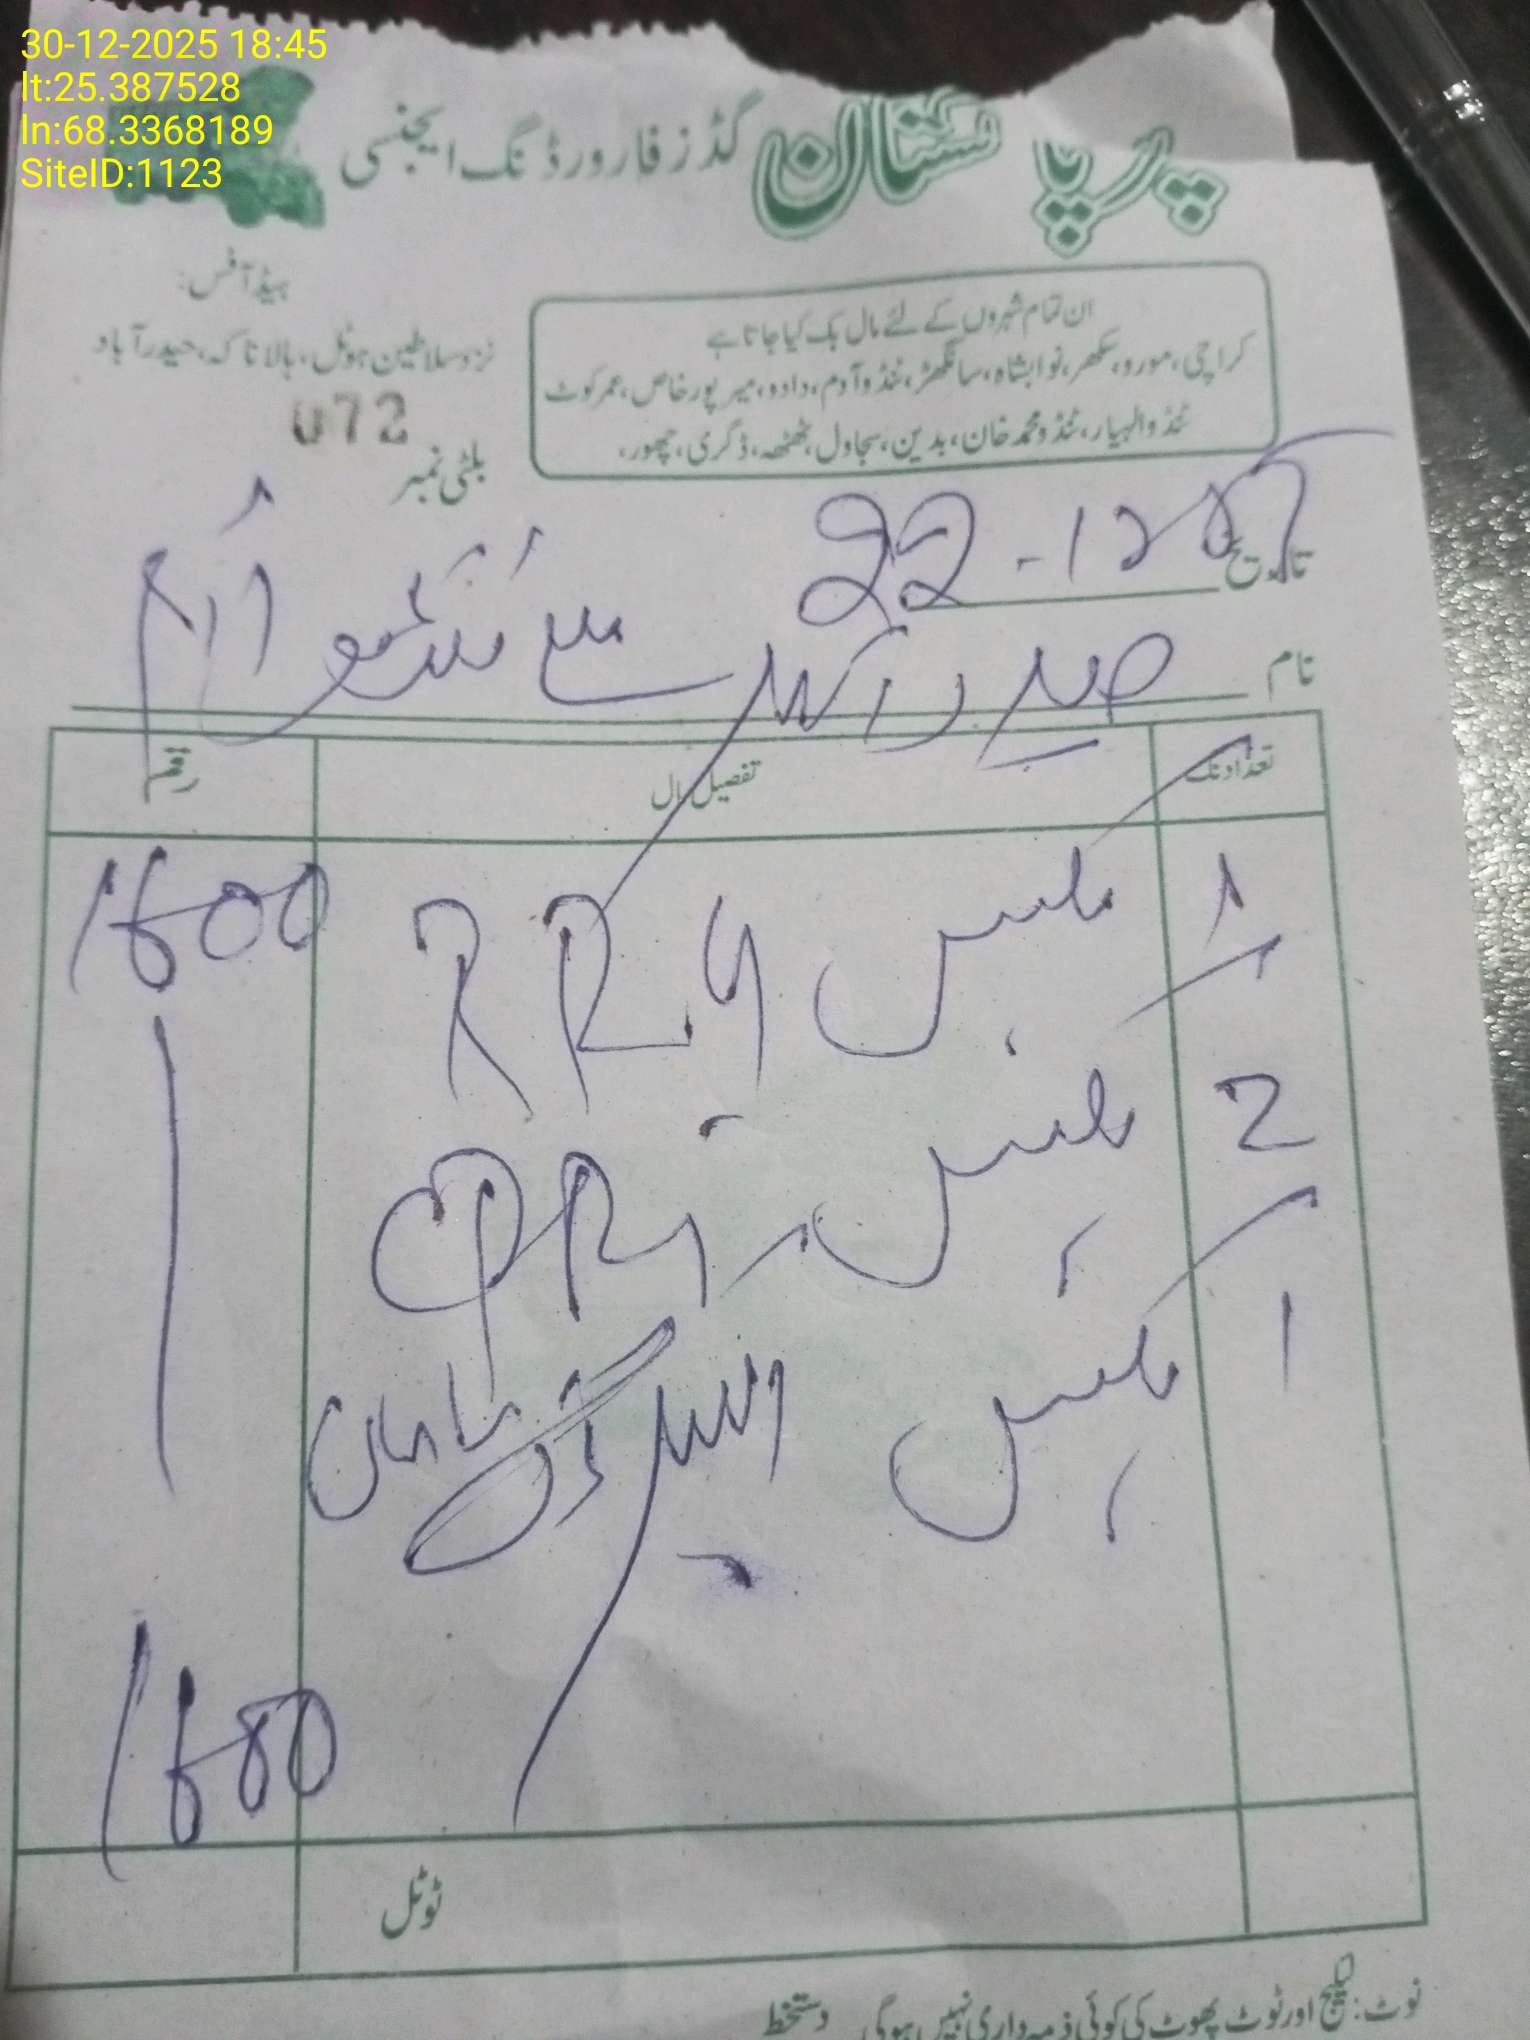 30-12-2025 18:45
lt:25.387528
ln:68.3368189
SiteID:1123
گڈز فارورڈنگ ایجنسی
ہیڈ آفس:
نزد سلاطین ہوٹل، بالا ناکہ، حیدرآباد
ان تمام شہروں کے لئے مال بک کیا جاتا ہے
کراچی، مورو، سکھر، نوابشاہ، سانگھڑ، ٹنڈو آدم، دادو، میرپورخاص، عمرکوٹ
ٹنڈوالہیار، ٹنڈومحمد خان، بدین، سجاول، ٹھٹھہ، ڈگری، چھور،
بلٹی نمبر 072
تاریخ 22-12
نام حیدرآباد سے ٹنڈو آدم
تعداد نگ تفصیل مال رقم
1 بکس RRU 1600
2 بکس CPRI
1 بکس
1600
ٹوٹل
نوٹ: لیکیج اور ٹوٹ پھوٹ کی کوئی ذمہ داری نہیں ہوگی دستخط